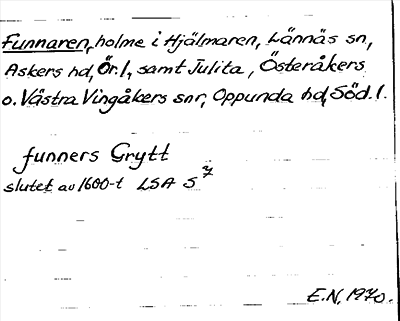 Funnaren, holme i Hjälmaren, Lännäs sn,
Askers hd, Ör. l., samt Julita, Österåkers
o. Västra Vingåkers snr, Oppunda hd, Söd. l.
funners Grytt
slutet av 1600-t LSA S 7
E.N. 1970.